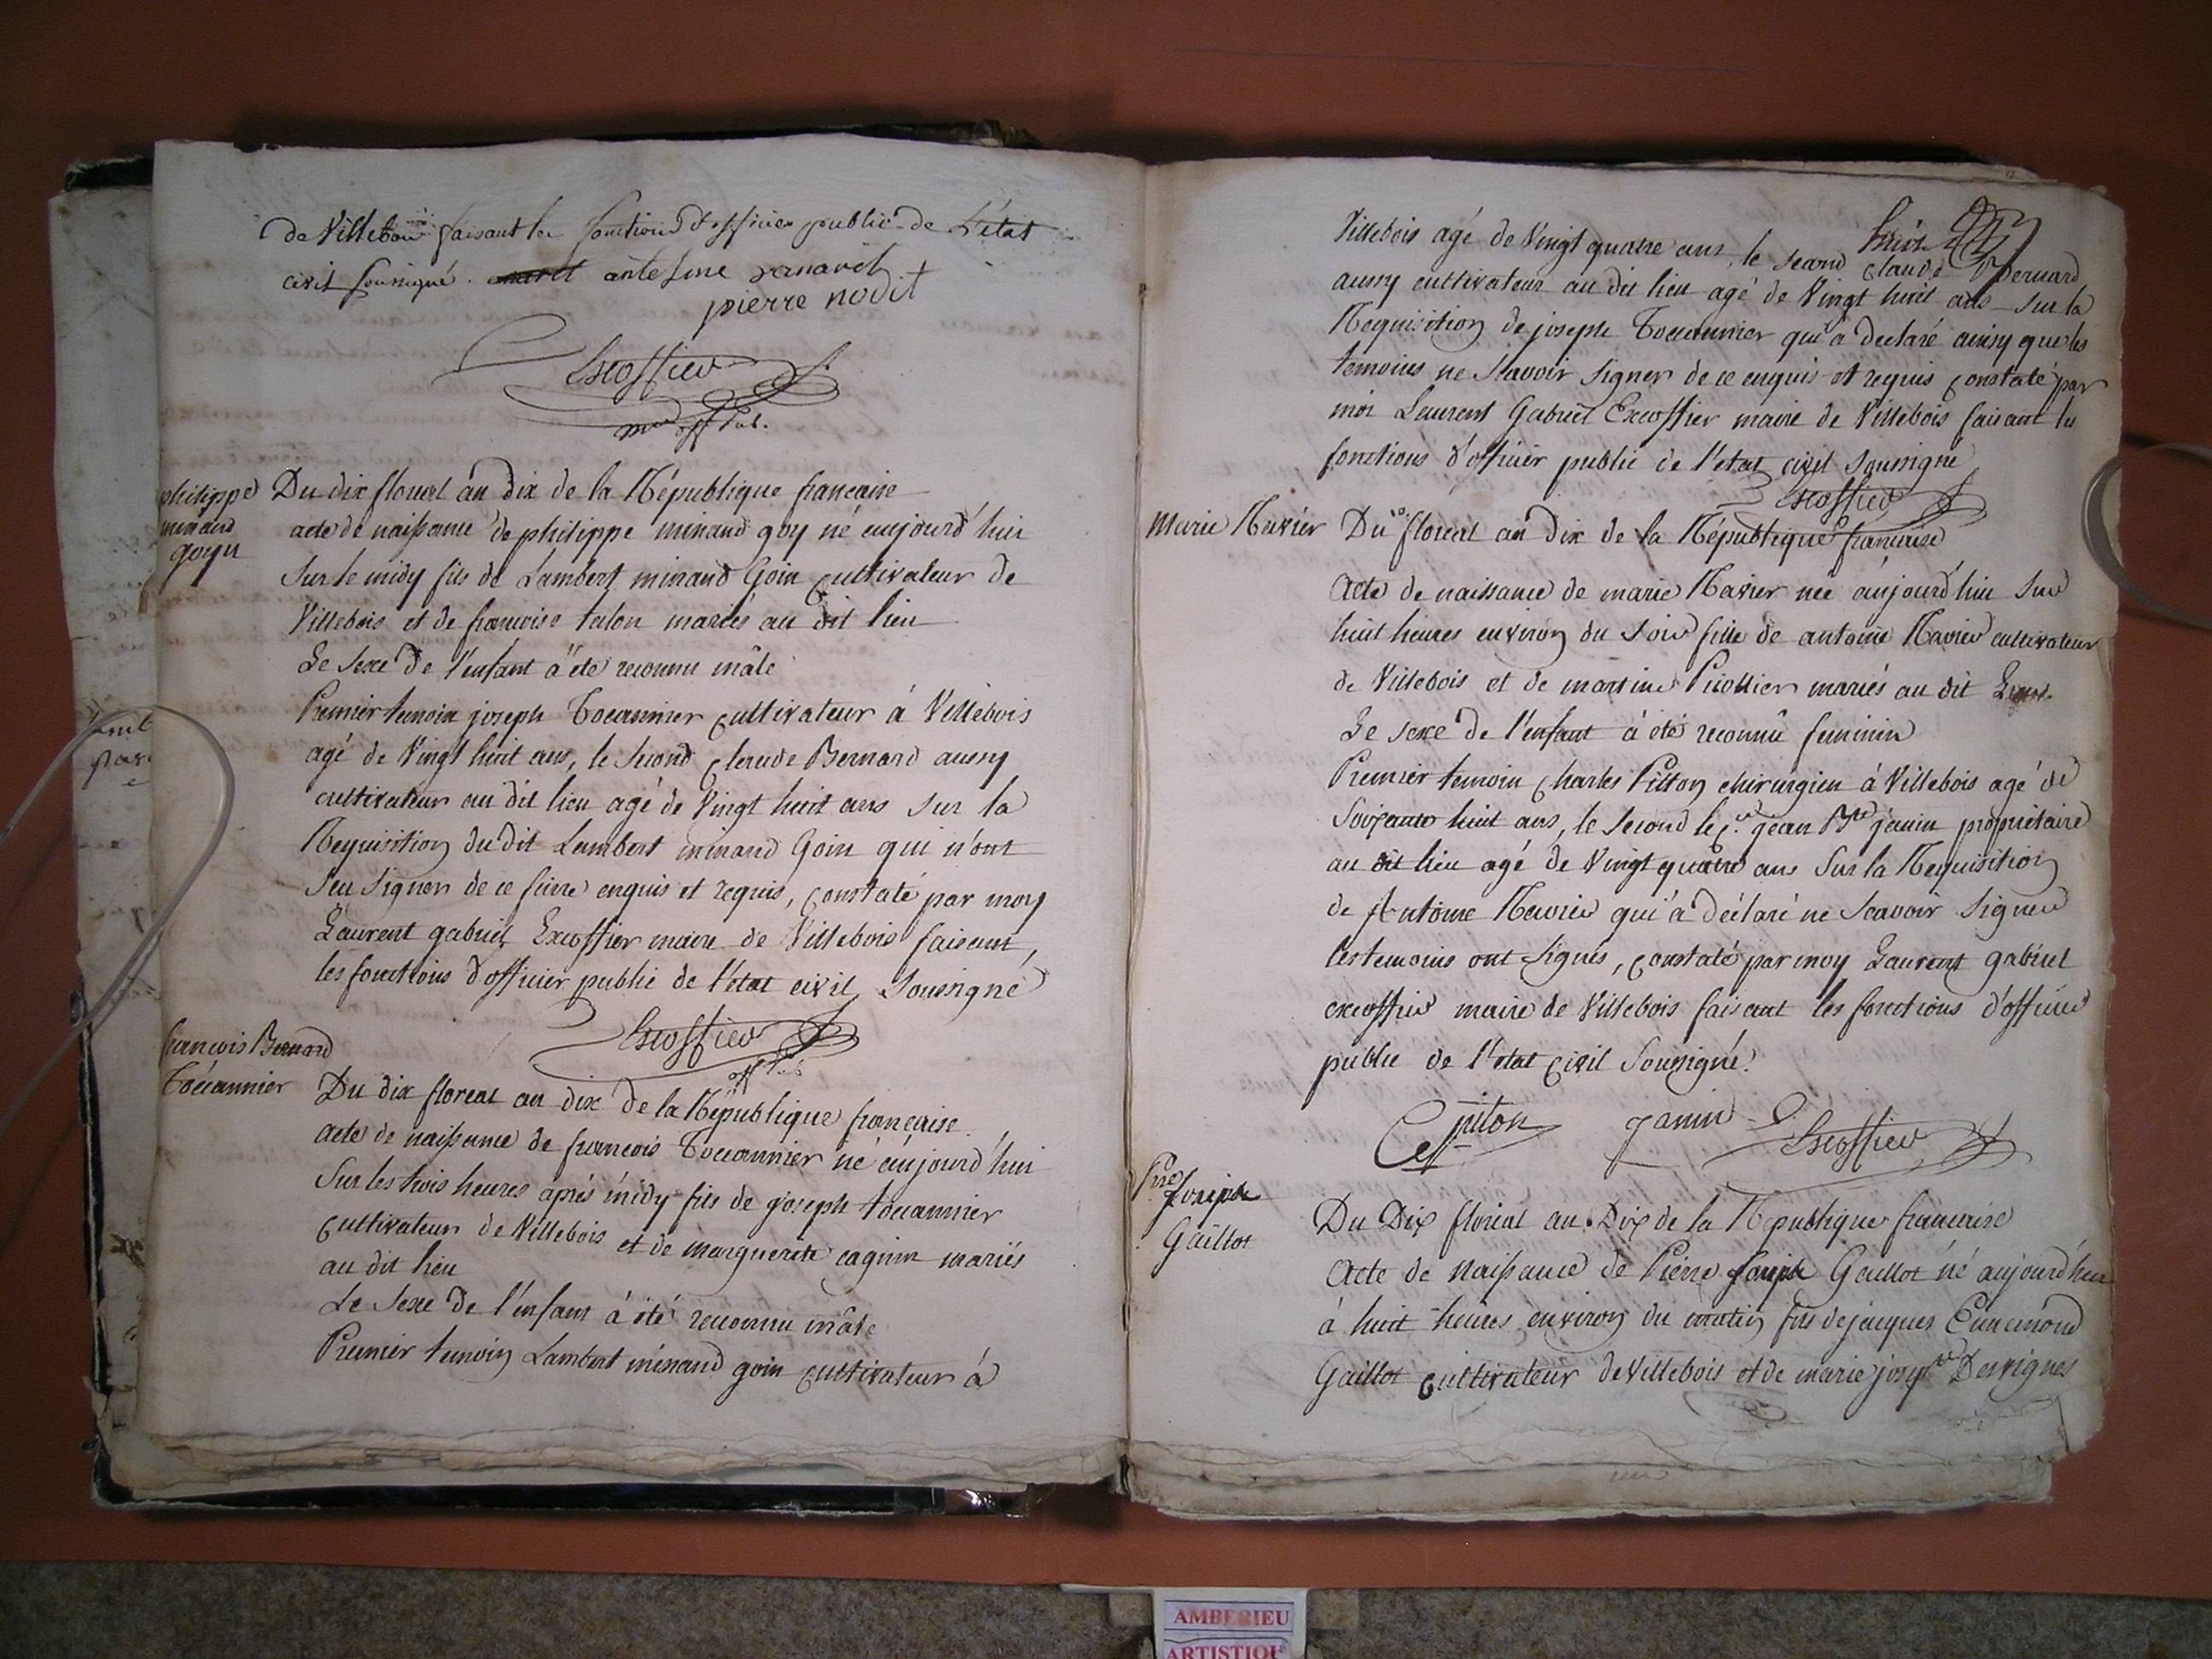 de Villebois faisant les fonctions d'officier public de L'état
civil soussigné. antelme ranavel
pierre nodit
Excoffier
m.re off Pub.
philippe
minand
goyn
Du dix floreal an dix de la République francaise
acte de naissance de philippe minand goy né aujourd'hui
Sur le midy fils de Lambert minand Goin cultivateur de
Villebois et de francoise talon mariés au dit lieu
Le Sexe de l'enfant à été reconnu mâle
Premier temoin joseph Tocannier cultivateur à Villebois
agé de Vingt huit ans, le second claude Bernard aussy
cultivateur au dit lieu agé de Vingt huit ans sur la
Requisition du dit Lambert minand Goin qui n'ont
seu signer de ce faire enquis et requis, constaté par moy
Laurent gabriel Excoffier maire de Villebois faisant,
les fonctions d'officier public de l'état civil Soussigné
Excoffier
off Pub
francois Bernard
Tocannier
Du dix floreal an dix de la République française
acte de naissance de francois Tocannier né aujourd'hui
Sur les trois heures après midy fils de joseph tocannier
cultivateur de Villebois et de marguerite cagnin mariés
au dit lieu
Le Sexe de l'enfant à été reconnu mâle
Premier temoin Lambert minand goin cultivateur à
huit
Villebois agé de Vingt quatre ans, le second claude Bernard
aussy cultivateur au dit lieu agé de Vingt huit ans sur la
Requisition de joseph Tocannier qui a declaré ainsy que les
temoins ne Scavoir signer de ce enquis et requis constaté par
moi Laurent Gabriel Excoffier maire de Villebois faisant les
fonctions d'officier public de l'etat civil soussigné
Excoffier
Marie Ravier
Du floreal an dix de la République francaise
Acte de naissance de marie Ravier née aujourd'hui sur
huit heures environ du soir fille de antoine Ravier cultivateur
de Villebois et de martine Picollier mariés au dit Lieu
Le sexe de l'enfant à été reconnû feminin
Premier temoin Charles Pitton chirurgien à Villebois agé de
Soixante huit ans, le second le c.en jean B.te janin propriétaire
au dit lieu agé de Vingt quatre ans Sur la Requisition
de Antoine Ravier qui à déclaré ne Scavoir Signer
les temoins ont signés, constaté par moy Laurent gabriel
excoffier maire de Villebois faisant les fonctions d'officier
public de l'etat civil Soussigné.
piton Janin Excoffier
P.rre
Joseph
Gaillot
Du Dix floréal an Dix de la République francaise
Acte de Naissance de Pierre Joseph Gaillot né aujourd'hui
à huit heures environ du matin fils de jacques Ennemond
Gaillot cultivateur de Villebois et de marie josep.te Desvignes
AMBERIEU
ARTISTIQU